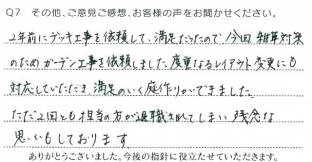 Q7 その他、ご意見ご感想、お客様の声をお聞かせください。
2年前にデッキ工事を依頼して、満足だったので今回雑草対策
のためガーデン工事を依頼しました。度重なるレイアウト変更にも
対応していただき、満足のいく庭作りができました。
ただ2回とも担当の方が退職されてしまい、残念な
思いもしております
ありがとうございました。今後の指針に役立たせていただきます。